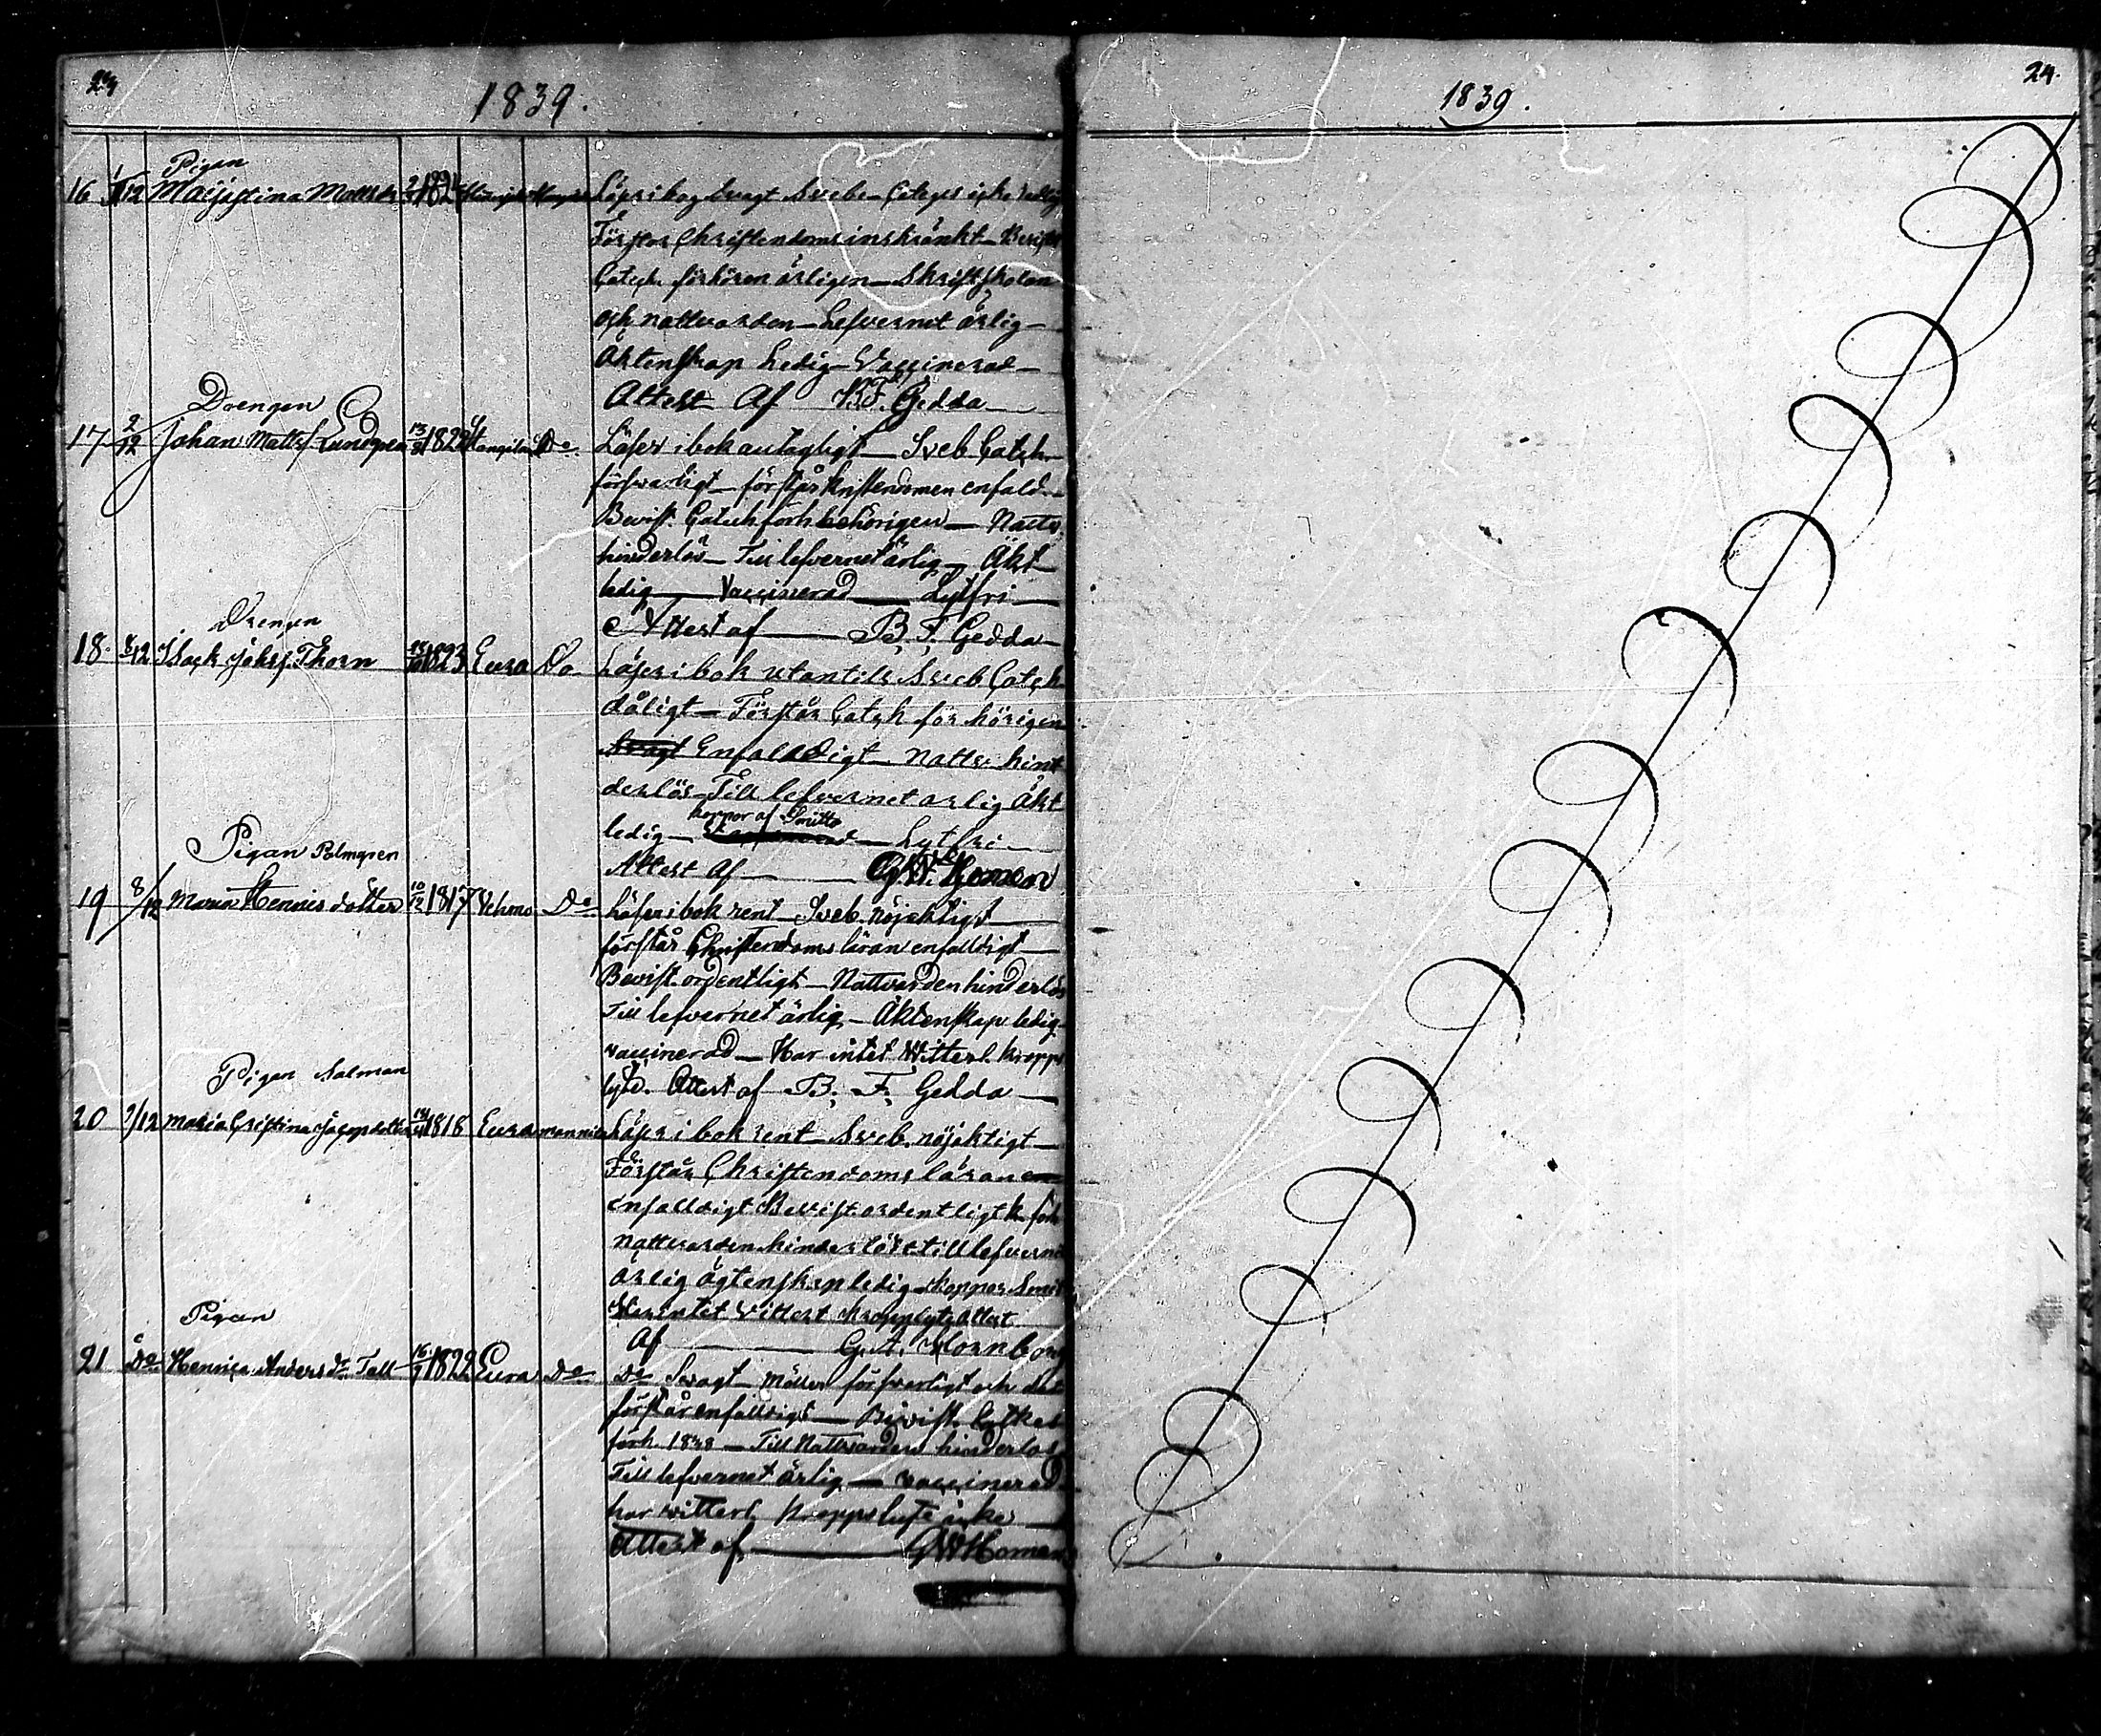 1839.
Pigan
16 1/12 Majastina Matts 1824 Läser i bok Svagt Sveb. Catges icke
Förstår Christendoms inskränkt Bevist
Catech. förhören årligen Skriftskolan
och nattvarden Lefvernet ärlig
Äktenskap Ledig Vaccinerad
Attest Af B.F. Gedda
Drengen
17 2/12 Johan Matts Lundgren 13/8 182 Do Läser i bok antagligt Sveb Catch.
försvarligt förstår Kristendomen enfald.
Bevist. Catech förh behörigen Nattv.
hinderlös Till lefvernet ärlig Äkt
ledig Vaccinerad Lytfri
Attest af B. F. Gedda
Drengen
18. /12 Isack Johs. Thorn 1823 Eura Do Läser i bok utantill Sveb Catch
dåligt Förstår Catch för hörigen
Svagt Enfalddigt Nattv hin
derlös Till lefvernet arlig Äkt
koppor af Smitta
ledig Lytfri
Attest Af G.W. Homen
Pigan Palmgren
19 8/12 Maria Hennis dotter 10/12 1817 Vehmo Do Läser i bok rent Sveb. nöjaktigt
förstår Christendoms läran enfalldigt
Bevist ordentligt Nattvarden hinderlös
Till lefvernet ärlig Äktenskap ledig
vaccinerad Har intet Witterl. kropps
lyte. Attest af B. F. Gedda
Pigan Salman
20 9/12 Maria Cristina Jacopsdotter 1818 Eura Läser i bok rent Sveb. nöjaktigt
Förstår Christendoms läran en
enfalldigt Bevist ordentligt k. förh
nattvarden hinderlös till lefverne
ärlig ägtenskap ledig koppor Smit
Har intet vittert kropplyte Attest
Af G. A. Hornborg
Pigan
21 Do Henrica Anders dr Tall 16/9 1822 Eura Do Do Svagt försvarligt och det
förstår enfalldigt Bevist
förh. 1838 Till Nattvarden hinderlös
Till lefvernet ärlig vaccinerad
har witterl. kroppslyte icke
Attest af GW Homen
1839.
24.